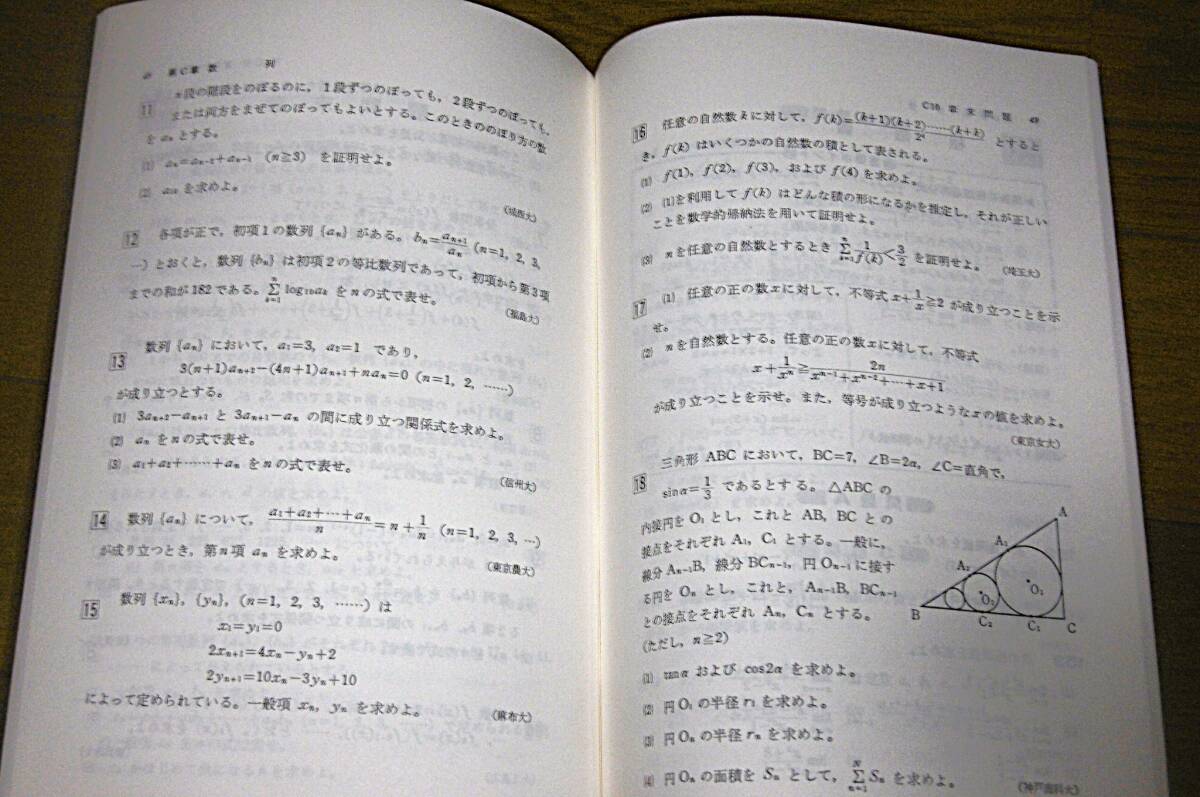 第C章 数 列
11 n段の階段をのぼるのに，1段ずつのぼっても，2段ずつのぼっても，
または両方をまぜてのぼってもよいとする。このときののぼり方の数
を aₙ とする。
(1) aₙ=aₙ₋₂+aₙ₋₁ (n≧3) を証明せよ。
(2) a₁₀ を求めよ。
(城西大)
12 各項が正で，初項1の数列 {aₙ} がある。bₙ=aₙ₊₁/aₙ (n=1, 2, 3,
…) とおくと，数列 {bₙ} は初項2の等比数列であって，初項から第3項
までの和が182である。∑ₖ₌₁ⁿ log₁₀aₖ をnの式で表せ。
(福島大)
13 数列 {aₙ} において，a₁=3, a₂=1 であり，
3(n+1)aₙ₊₂-(4n+1)aₙ₊₁+naₙ=0 (n=1, 2, ……)
が成り立つとする。
(1) 3aₙ₊₂-aₙ₊₁ と 3aₙ₊₁-aₙ の間に成り立つ関係式を求めよ。
(2) aₙ をnの式で表せ。
(3) a₁+a₂+……+aₙ をnの式で表せ。
(信州大)
14 数列 {aₙ} について，(a₁+a₂+…+aₙ)/n=n+1/n (n=1, 2, 3, …)
が成り立つとき，第n項 aₙ を求めよ。
(東京農大)
15 数列 {xₙ}, {yₙ}, (n=1, 2, 3, ……) は
x₁=y₁=0
2xₙ₊₁=4xₙ-yₙ+2
2yₙ₊₁=10xₙ-3yₙ+10
によって定められている。一般項 xₙ, yₙ を求めよ。
(麻布大)
C10 章末問題 49
16 任意の自然数kに対して，f(k)=(k+1)(k+2)……(k+k)/2ᵏ とすると
き，f(k) はいくつかの自然数の積として表される。
(1) f(1), f(2), f(3), および f(4) を求めよ。
(2) (1)を利用して f(k) はどんな積の形になるかを推定し，それが正しい
ことを数学的帰納法を用いて証明せよ。
(3) nを任意の自然数とするとき ∑ₖ₌₁ⁿ 1/f(k)<3/2 を証明せよ。
(埼玉大)
17 (1) 任意の正の数xに対して，不等式 x+1/x≧2 が成り立つことを示
せ。
(2) nを自然数とする。任意の正の数xに対して，不等式
x+1/xⁿ≧2n/(xⁿ⁻¹+xⁿ⁻²+…+x+1)
が成り立つことを示せ。また，等号が成り立つようなxの値を求めよ。
(東京女大)
18 三角形 ABC において，BC=7, ∠B=2α, ∠C=直角で，
sinα=1/3 であるとする。△ABC の
内接円を O₁ とし，これと AB, BC との
接点をそれぞれ A₁, C₁ とする。一般に，
線分 Aₙ₋₁B, 線分 BCₙ₋₁, 円 Oₙ₋₁ に接す
る円を Oₙ とし，これと，Aₙ₋₁B, BCₙ₋₁
との接点をそれぞれ Aₙ, Cₙ とする。
(ただし，n≧2)
A
A₁
A₂
O₁
O₂
B
C₂
C₁
C
(1) tanα および cos2α を求めよ。
(2) 円 O₁ の半径 r₁ を求めよ。
(3) 円 Oₙ の半径 rₙ を求めよ。
(4) 円 Oₙ の面積を Sₙ として，∑ₙ₌₁ᴺ Sₙ を求めよ。
(神戸商科大)